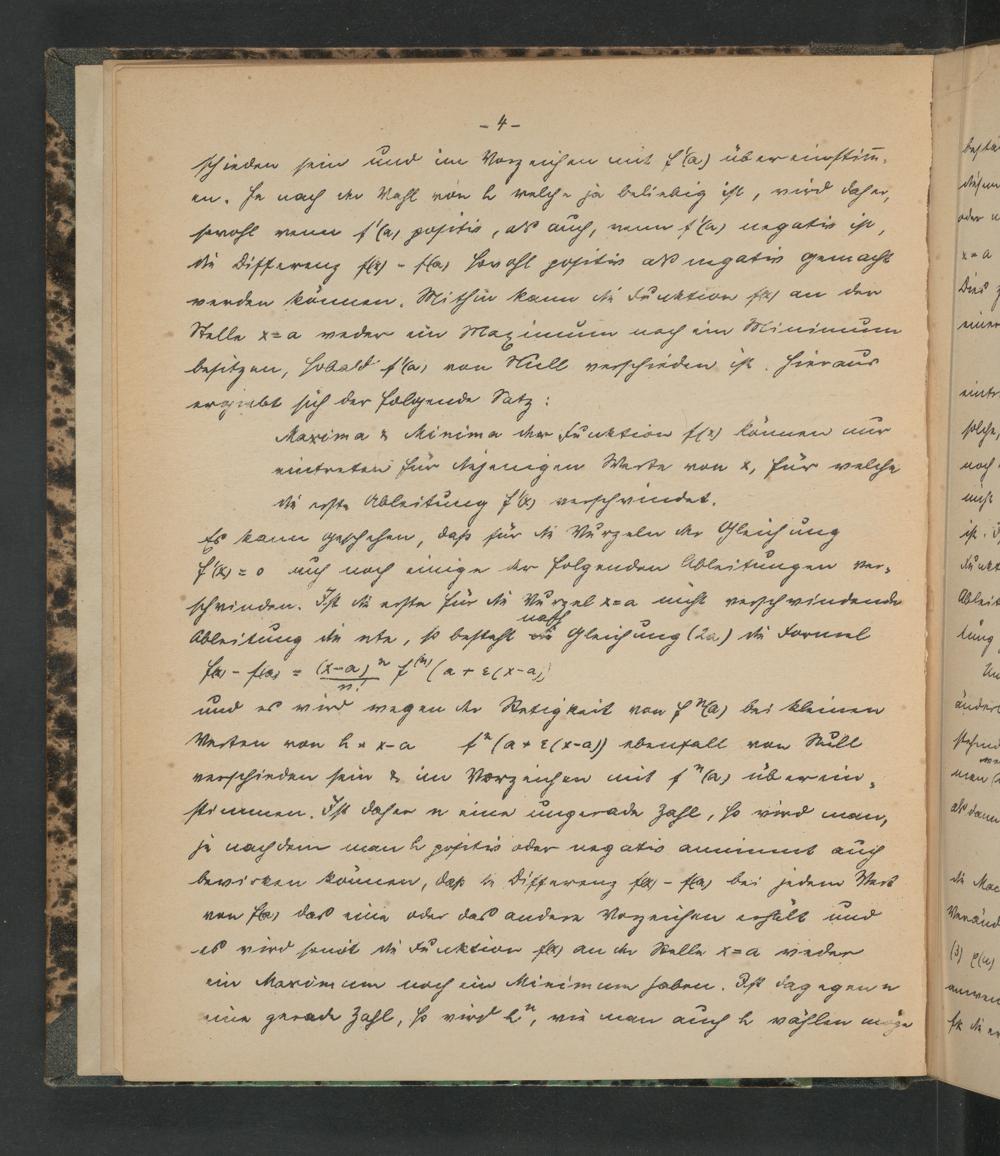 - 4 -
schieden sein und im Vorzeichen mit f'(a) übereinstim-
en. Je nach der Wahl von h welche ja beliebig ist, wird daher,
sowohl wenn f'(a) positiv, als auch, wenn f'(a) negativ ist,
die Differenz f(x) - f(a) sowohl positiv als negativ gemacht
werden können. Mithin kann die Funktion f(x) an der
Stelle x=a weder ein Maximum noch ein Minimum
besitzen, sobald f'(a) von Null verschieden ist. Hieraus
ergiebt sich der folgende Satz:
Maxima & Minima der Funktion f(x) können nur
eintreten für diejenigen Werte von x, für welche
die erste Ableitung f'(x) verschwindet.
Es kann geschehen, daß für die Wurzeln der Gleichung
f'(x) = 0 auch noch einige der folgenden Ableitungen ver-
schwinden. Ist die erste für die Wurzel x=a nicht verschwindende
Ableitung die nte, so besteht nach Gleichung (2a) die Formel
f(x) - f(a) = (x-a)^n / n! f^(n) (a + ε(x-a))
und es wird wegen der Stetigkeit von f^n(a) bei kleinen
Werten von h = x-a f^n (a + ε(x-a)) ebenfall von Null
verschieden sein & im Vorzeichen mit f^n(a) überein-
stimmen. Ist daher n eine ungerade Zahl, so wird man,
je nachdem man h positiv oder negativ annimmt auch
bewirken können, daß die Differenz f(x) - f(a) bei jedem Wert
von f(a) das eine oder das andere Vorzeichen erhält und
es wird somit die Funktion f(x) an der Stelle x=a weder
ein Maximum noch ein Minimum haben. Ist dagegen n
eine gerade Zahl, so wird h^n, wie man auch h wählen möge